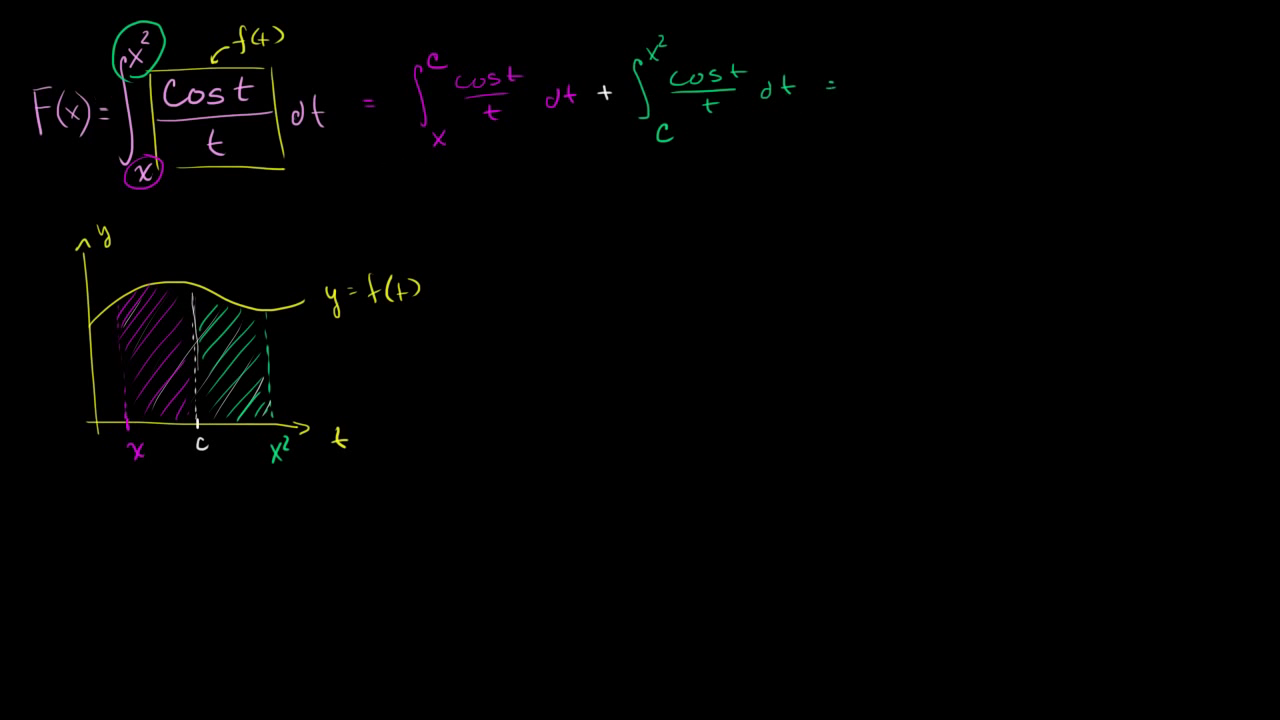 f(t)
F(x) = ∫_x^{x²} cos t / t dt = ∫_x^c cos t / t dt + ∫_c^{x²} cos t / t dt =
y
y = f(t)
x c x² t